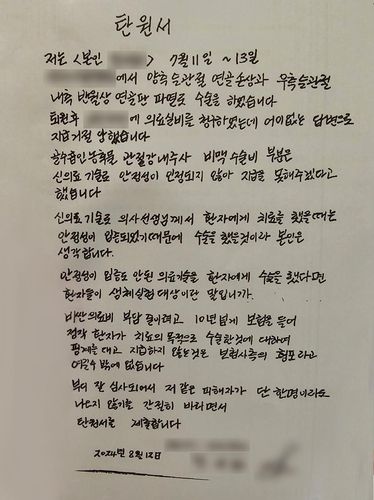 탄원서
저는 <본인 > 7월 11일 ~13일
에서 양측슬관절 연골손상과 우측슬관절
내측 반월상 연골판 파열로 수술을 하였습니다
퇴원후 에 의료실비를 청구하였는데 어이없는 답변으로
지급거절 당했습니다
골수흡인농축물 관절강내주사 비싼수술비 부분은
신의료 기술로 안정성이 인정되지 않아 지급을 못해주겠다고
했습니다
신의료 기술로 의사선생님께서 환자에게 치료를 했을때는
안정성이 입증되었기때문에 수술을 했을것이라 본인은
생각합니다.
안정성이 입증도 안된 의료기술을 환자에게 수술을 했다면
환자들이 생체실험 대상이란 말입니까.
비싼의료비 부담 줄이려고 10년넘게 보험을 들어
정작 환자가 치료의 목적으로 수술한것에 대하여
핑계를 대고 지급하지 않는것은 보험사측의 횡포라고
여길수 밖에 없습니다
부디 잘 심사되어서 저 같은 피해자가 단 한명이라도
나오지 않기를 간절히 바라면서
탄원서를 제출합니다
2024년 8월 12일